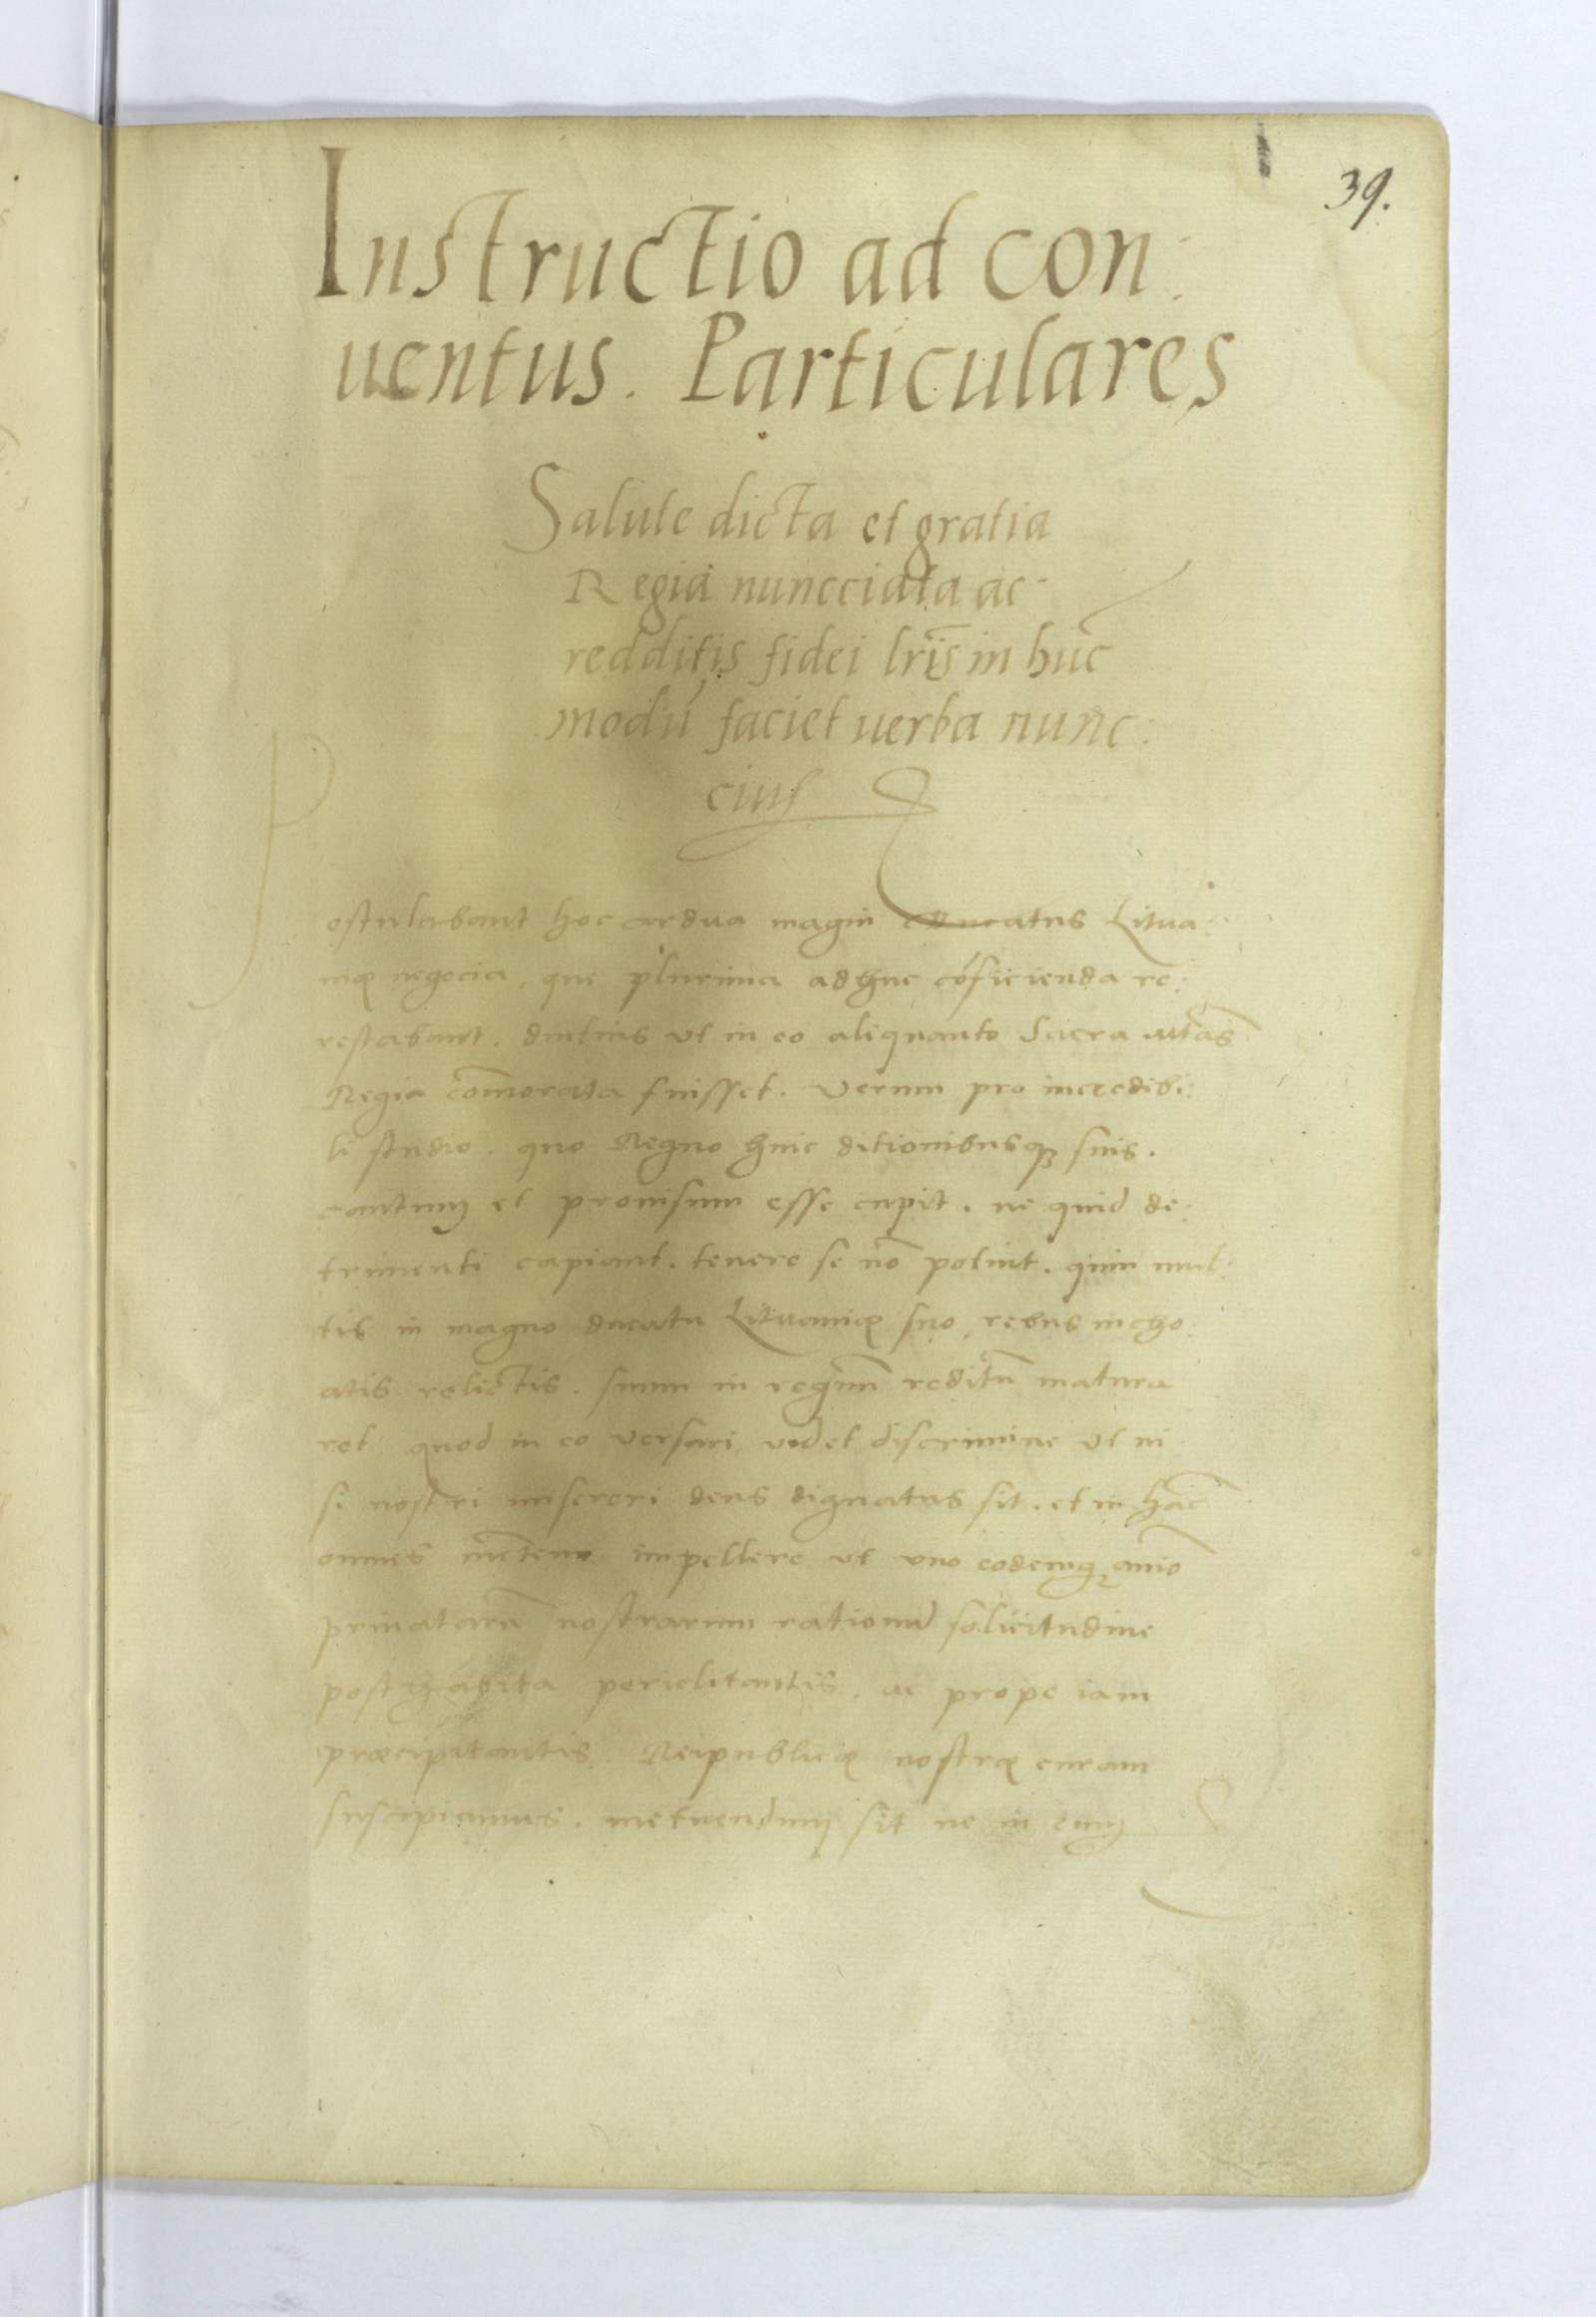 39.
Instructio ad con:
uentus. Particulares
Salute dicta et gratia
Regia luncciata ac
redditis fidei lr̄is in hūc
modū faciet uerba nunc:
cius
Postulabant hoc ardua magni Ducatus Litua:
nię negocia, que plurima adhuc cōficienda re:
restabant. diutius vt in eo aliquanto Sacra Mtas
Regia com̄orata fuisset. Verum pro incredibi:
li studio. quo Regno huic ditionibusqȝ suis.
cautum et prouisum esse cupit. ne quid de:
trimenti capiant. tenere se nō potuit. quin mul:
tis in magno ducatu Lituanię suo, rebus incho:
atis relictis. suum in regnū reditū matura
ret quod in eo versari, videt discrimine vt ni
si nostri misereri deus dignatus sit. et in hāc
omnes mētem impellere vt vno eodemqȝ aīo
priuatarū nostrarum rationū solicitudine
posthabita periclitantis. ac prope iam
præcipitantis. Reipublicę nostrę curam
suscipiamus. metuendum sit ne in eum